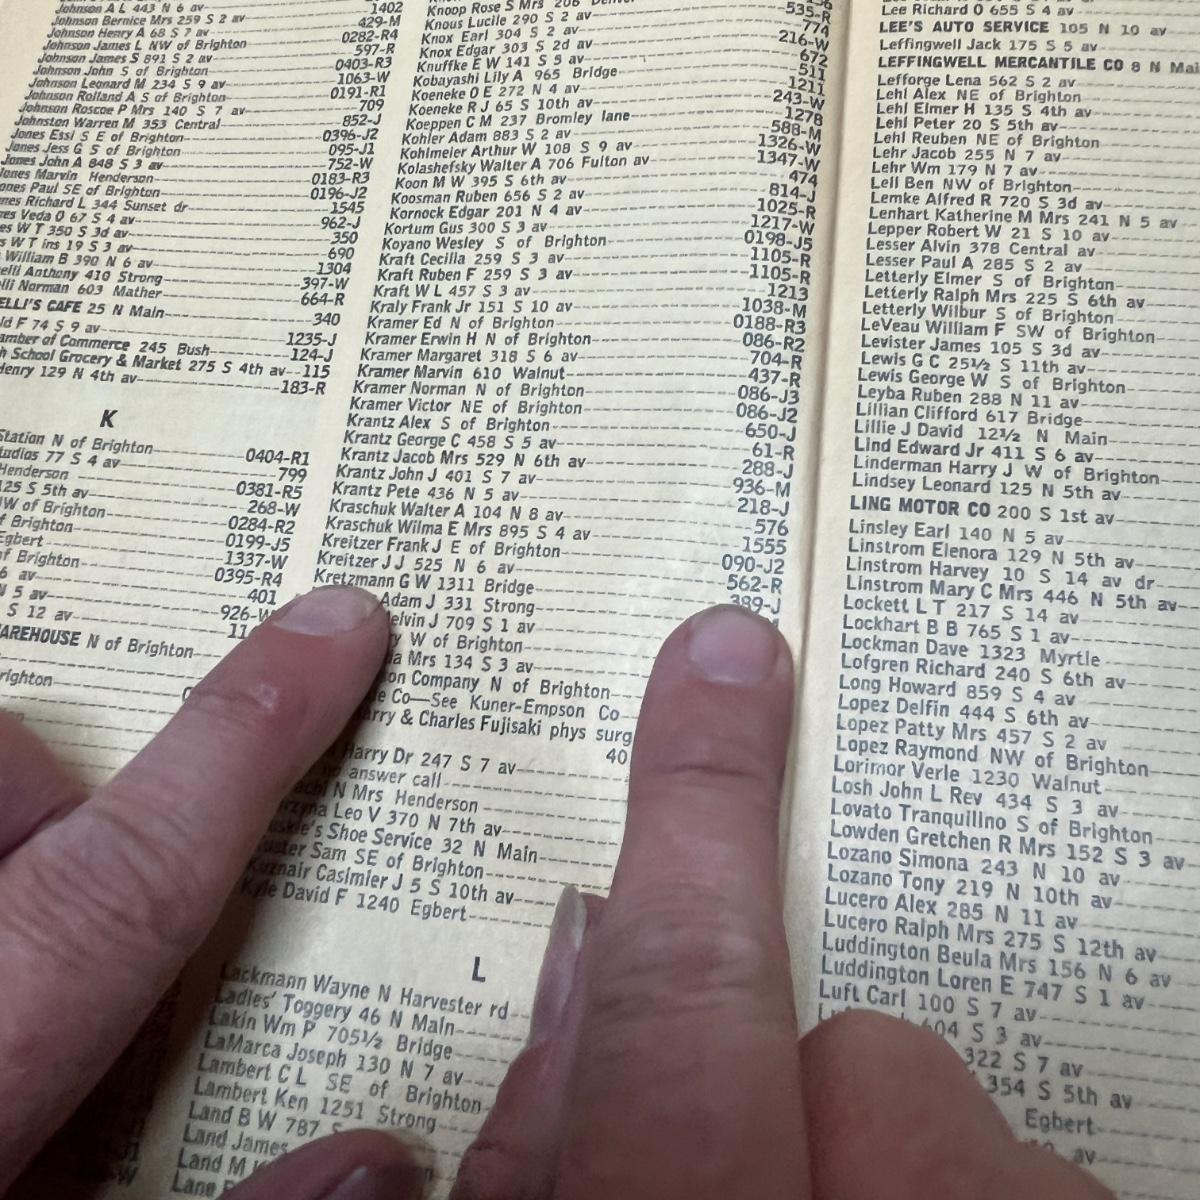 Johnson A L 443 N 6 av
1402
Johnson Bernice Mrs 259 S 2 av
429-M
Johnson Henry A 68 S 7 av
0282-R4
Johnson James L NW of Brighton
597-R
Johnson James S 891 S 2 av
0403-R3
Johnson John S of Brighton
1063-W
Johnson Leonard M 234 S 9 av
0191-R1
Johnson Rolland A S of Brighton
709
Johnson Roscoe P Mrs 140 S 7 av
852-J
Johnston Warren M 353 Central
0396-J2
Jones Essl S E of Brighton
095-J1
Jones Jess G S of Brighton
752-W
Jones John A 848 S 3 av
0183-R3
Jones Marvin Henderson
0196-J2
ones Paul SE of Brighton
1545
nes Richard L 344 Sunset dr
962-J
es Veda O 67 S 4 av
350
es W T 350 S 3d av
690
s W T ins 19 S 3 av
1304
William B 390 N 6 av
397-W
elli Anthony 410 Strong
664-R
lli Norman 603 Mather
ELLI'S CAFE 25 N Main
340
ld F 74 S 9 av
1235-J
amber of Commerce 245 Bush
124-J
h School Grocery & Market 275 S 4th av
115
Henry 129 N 4th av
183-R
K
Station N of Brighton
0404-R1
tudios 77 S 4 av
799
Henderson
0381-R5
25 S 5th av
268-W
W of Brighton
0284-R2
f Brighton
0199-J5
Egbert
1337-W
of Brighton
0395-R4
6 av
401
N 5 av
926-W
S 12 av
11
AREHOUSE N of Brighton
righton
Knoop Rose S Mrs 206
535-R
Knous Lucile 290 S 2 av
774
Knox Earl 304 S 2 av
216-W
Knox Edgar 303 S 2d av
672
Knuffke E W 141 S 5 av
511
Kobayashi Lily A 965 Bridge
1211
Koeneke O E 272 N 4 av
243-W
Koeneke R J 65 S 10th av
1278
Koeppen C M 237 Bromley lane
588-M
Kohler Adam 883 S 2 av
1326-W
Kohlmeier Arthur W 108 S 9 av
1347-W
Kolashefsky Walter A 706 Fulton av
474
Koon M W 395 S 6th av
814-J
Koosman Ruben 656 S 2 av
1025-R
Kornock Edgar 201 N 4 av
1217-W
Kortum Gus 300 S 3 av
0198-J5
Koyano Wesley S of Brighton
1105-R
Kraft Cecilla 259 S 3 av
1105-R
Kraft Ruben F 259 S 3 av
1213
Kraft W L 457 S 3 av
1038-M
Kraly Frank Jr 151 S 10 av
0188-R3
Kramer Ed N of Brighton
086-R2
Kramer Erwin H N of Brighton
704-R
Kramer Margaret 318 S 6 av
437-R
Kramer Marvin 610 Walnut
086-J3
Kramer Norman N of Brighton
086-J2
Kramer Victor NE of Brighton
650-J
Krantz Alex S of Brighton
61-R
Krantz George C 458 S 5 av
288-J
Krantz Jacob Mrs 529 N 6th av
936-M
Krantz John J 401 S 7 av
218-J
Krantz Pete 436 N 5 av
576
Kraschuk Walter A 104 N 8 av
1555
Kraschuk Wilma E Mrs 895 S 4 av
090-J2
Kreitzer Frank J E of Brighton
562-R
Kreitzer J J 525 N 6 av
389-J
Kretzmann G W 1311 Bridge
Adam J 331 Strong
elvin J 709 S 1 av
y W of Brighton
a Mrs 134 S 3 av
on Company N of Brighton
e Co—See Kuner-Empson Co
arry & Charles Fujisaki phys surg
40
Harry Dr 247 S 7 av
answer call
achi N Mrs Henderson
rzyna Leo V 370 N 7th av
skie's Shoe Service 32 N Main
uster Sam SE of Brighton
Kuznair Casimier J 5 S 10th av
Kyle David F 1240 Egbert
L
Lackmann Wayne N Harvester rd
Ladies' Toggery 46 N Main
Lakin Wm P 705½ Bridge
LaMarca Joseph 130 N 7 av
Lambert C L SE of Brighton
Lambert Ken 1251 Strong
Land B W 787 S
Land James
Land M
Lane
Lee Richard O 655 S 4 av
LEE'S AUTO SERVICE 105 N 10 av
Leffingwell Jack 175 S 5 av
LEFFINGWELL MERCANTILE CO 8 N Mai
Lefforge Lena 562 S 2 av
Lehl Alex NE of Brighton
Lehl Elmer H 135 S 4th av
Lehl Peter 20 S 5th av
Lehl Reuben NE of Brighton
Lehr Jacob 255 N 7 av
Lehr Wm 179 N 7 av
Lell Ben NW of Brighton
Lemke Alfred R 720 S 3d av
Lenhart Katherine M Mrs 241 N 5 av
Lepper Robert W 21 S 10 av
Lesser Alvin 378 Central av
Lesser Paul A 285 S 2 av
Letterly Elmer S of Brighton
Letterly Ralph Mrs 225 S 6th av
Letterly Wilbur S of Brighton
LeVeau William F SW of Brighton
Levister James 105 S 3d av
Lewis G C 251½ S 11th av
Lewis George W S of Brighton
Leyba Ruben 288 N 11 av
Lillian Clifford 617 Bridge
Lillie J David 12½ N Main
Lind Edward Jr 411 S 6 av
Linderman Harry J W of Brighton
Lindsey Leonard 125 N 5th av
LING MOTOR CO 200 S 1st av
Linsley Earl 140 N 5 av
Linstrom Elenora 129 N 5th av
Linstrom Harvey 10 S 14 av dr
Linstrom Mary C Mrs 446 N 5th av
Lockett L T 217 S 14 av
Lockhart B B 765 S 1 av
Lockman Dave 1323 Myrtle
Lofgren Richard 240 S 6th av
Long Howard 859 S 4 av
Lopez Delfin 444 S 6th av
Lopez Patty Mrs 457 S 2 av
Lopez Raymond NW of Brighton
Lorimor Verle 1230 Walnut
Losh John L Rev 434 S 3 av
Lovato Tranquilino S of Brighton
Lowden Gretchen R Mrs 152 S 3 av
Lozano Simona 243 N 10 av
Lozano Tony 219 N 10th av
Lucero Alex 285 N 11 av
Lucero Ralph Mrs 275 S 12th av
Luddington Beula Mrs 156 N 6 av
Luddington Loren E 747 S 1 av
Luft Carl 100 S 7 av
604 S 3 av
322 S 7 av
354 S 5th av
Egbert
av